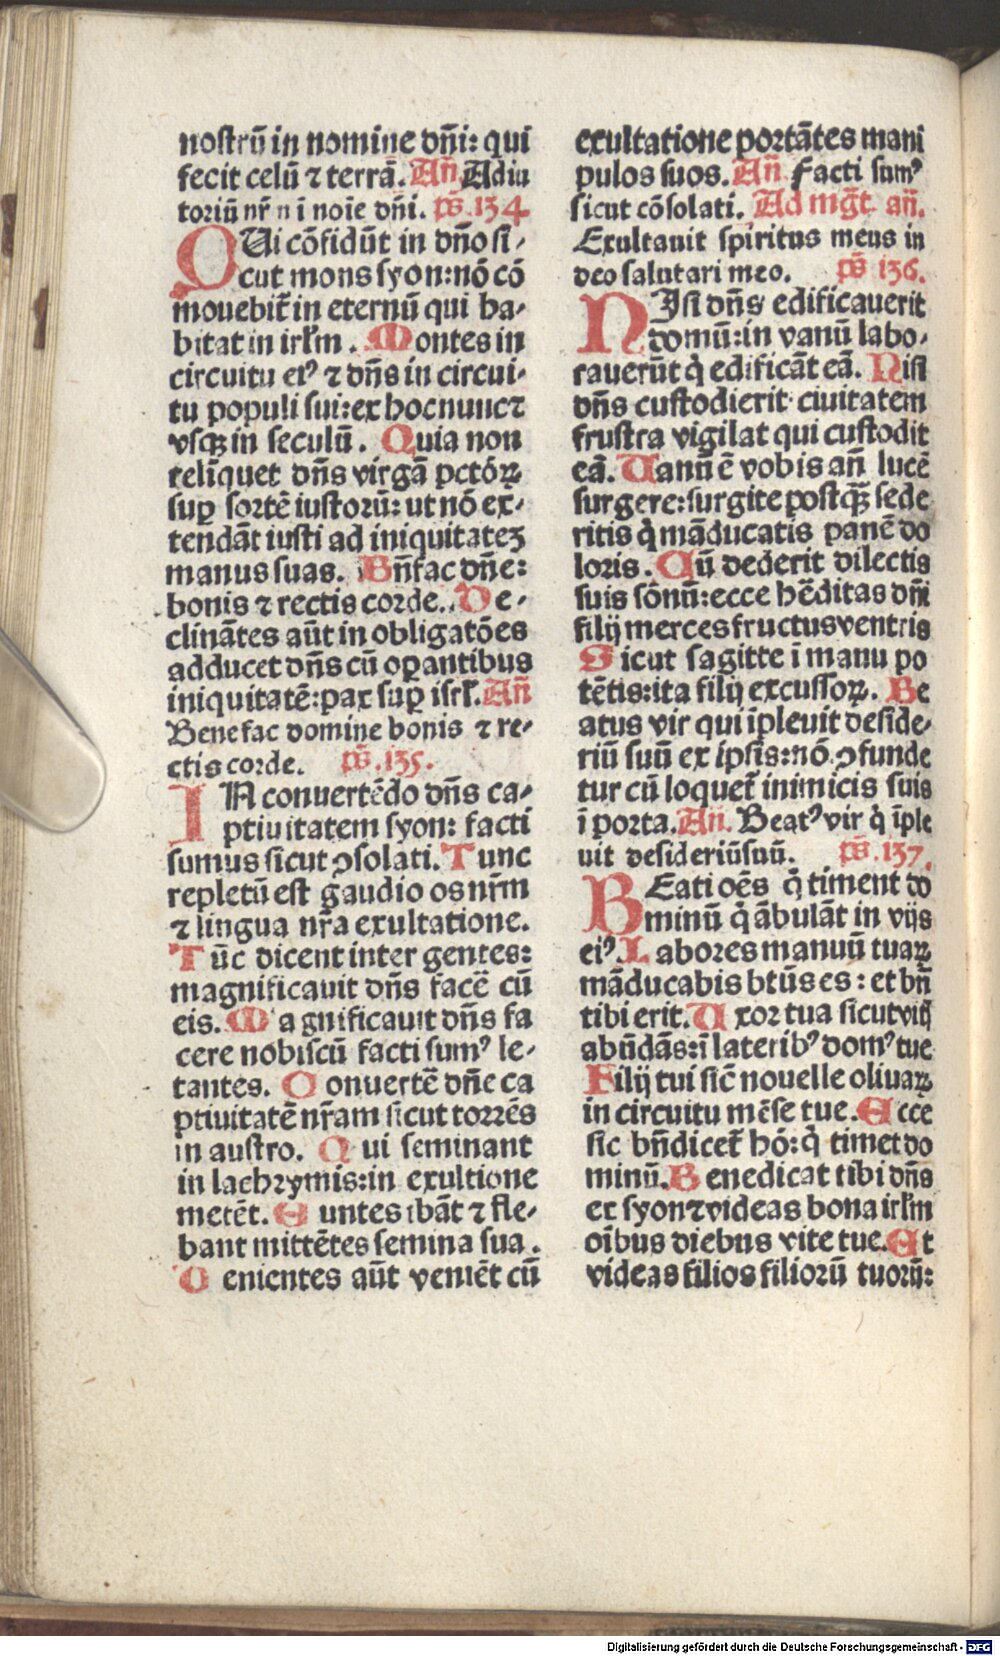 nostrū in nomine dn̄i: qui
fecit celū ⁊ terrā. An̄. Adiu
toriū nr̄ n ī noīe dn̄i. ps̄. 134.
QUi cōfidūt in dn̄o si⸗
cut mons syon: nō cō
mouebit̄ in eternū qui ha⸗
bitat in irl̄m. Montes in
circuitu eiꝰ ⁊ dn̄s in circui⸗
tu populi sui: ex hoc nunc ⁊
vsqꝫ in seculū. Quia non
relīquet dn̄s virgā pctōꝝ
suꝑ sortē iustorū: ut nō ex⸗
tendāt iusti ad iniquitateꝫ
manus suas. Bn̄fac dn̄e:
bonis ⁊ rectis corde. De⸗
clināteſ aūt in obligatōes
adducet dn̄s cū oꝑantibus
iniquitatē: pax suꝑ isrl̄. An̄
Benefac domine bonis ⁊ re⸗
ctis corde. ps̄. 135.
IN conuertēdo dn̄s ca⸗
ptiuitatem syon: facti
sumus sicut ꝯsolati. Tunc
repletū est gaudio os nr̄m
⁊ lingua nr̄a exultatione.
Tūc dicent inter gentes:
magnificauit dn̄s facē cū
eis. Magnificauit dn̄s fa
cere nobiscū facti sumꝰ le⸗
tantes. Conuertē dn̄e ca
ptiuitatē nr̄am sicut torrēs
in austro. Qui seminant
in lachrymis: in exultione
metēt. Euntes ibāt ⁊ fle⸗
bant mittētes semina sua.
Uenientes aūt veniēt cū
exultatione portātes mani
pulos suos. An̄. Facti sumꝰ
sicut cōsolati. Ad mḡt. an̄.
Exultauit spiritus meus in
deo salutari meo. ps̄ 136.
NIsi dn̄s edificauerit
domū: in vanū labo⸗
rauerūt q̄ edificāt eā. Nisi
dn̄s custodierit ciuitatem
frustra vigilat qui custodit
eā. Uanū ē vobis an̄ lucē
surgere: surgite postqꝫ sede
ritis q̄ māducatis panē do
loris. Cū dederit dilectis
suis sōnū: ecce hēditas dn̄i
filij merces fructus ventris
Sicut sagitte ī manu po
tētis: ita filij excussoꝝ. Be
atus vir qui īpleuit deside⸗
riū suū ex ipsis: nō ꝯfunde
tur cū loquet̄ inimicis suis
ī porta. An̄. Beatꝰ vir q̄ īple
uit desideriū suū. ps̄. 137.
BEati oēs q̄ timent do
minū q̄ ābulāt in vijs
eiꝰ. Labores manuū tuaꝝ
māducabis btūs es: et bn̄
tibi erit. Uxor tua sicut vitꝭ
abūdās: ī lateribꝰ domꝰ tue
Filij tui sic̄ nouelle oliuaꝝ
in circuitu mēse tue. Ecce
sic bn̄dicet̄ hō: q̄ timet do
minū. Benedicat tibi dn̄s
ex syon ⁊ videas bona irl̄m
oībus diebus vite tue. Et
videas filios filiorū tuorū:
Digitalisierung gefördert durch die Deutsche Forschungsgemeinschaft - DFG